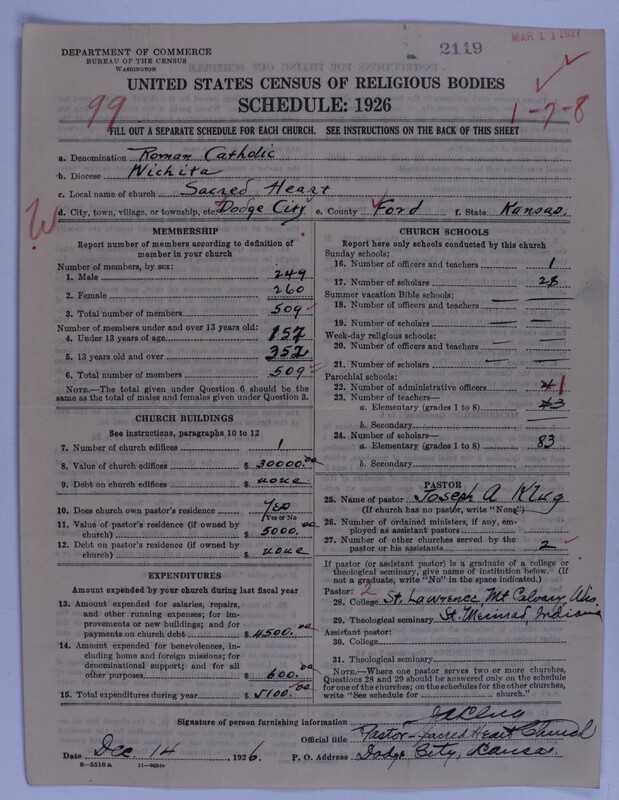 DEPARTMENT OF COMMERCE
BUREAU OF THE CENSUS
WASHINGTON
2119
MAR 11 1927
UNITED STATES CENSUS OF RELIGIOUS BODIES
SCHEDULE: 1926
99
1-7-8
FILL OUT A SEPARATE SCHEDULE FOR EACH CHURCH. SEE INSTRUCTIONS ON THE BACK OF THIS SHEET
a. Denomination Roman Catholic
b. Diocese Wichita
c. Local name of church Sacred Heart
d. City, town, village, or township, etc. Dodge City e. County Ford f. State Kansas.
MEMBERSHIP
Report number of members according to definition of
member in your church
Number of members, by sex:
1. Male 249
2. Female 260
3. Total number of members 509
Number of members under and over 13 years old:
4. Under 13 years of age 157
5. 13 years old and over 352
6. Total number of members 509
NOTE.—The total given under Question 6 should be
same as the total of males and females given under Question 3.
CHURCH BUILDINGS
See instructions, paragraphs 10 to 12
7. Number of church edifices 1
8. Value of church edifices $ 30000.00
9. Debt on church edifices $ none
10. Does church own pastor's residence? Yes
(Yes or No)
11. Value of pastor's residence (if owned by
church) $ 5000.00
12. Debt on pastor's residence (if owned by
church) $ none
EXPENDITURES
Amount expended by your church during last fiscal year
13. Amount expended for salaries, repairs,
and other running expenses; for im-
provements or new buildings; and for
payments on church debt $ 4500.00
14. Amount expended for benevolences, in-
cluding home and foreign missions; for
denominational support; and for all
other purposes $ 600.00
15. Total expenditures during year $ 5100.00
CHURCH SCHOOLS
Report here only schools conducted by this church
Sunday schools:
16. Number of officers and teachers 1
17. Number of scholars 28
Summer vacation Bible schools:
18. Number of officers and teachers — —
19. Number of scholars — —
Week-day religious schools:
20. Number of officers and teachers — —
21. Number of scholars — —
Parochial schools:
22. Number of administrative officers 1
23. Number of teachers—
a. Elementary (grades 1 to 8) 3
b. Secondary
24. Number of scholars—
a. Elementary (grades 1 to 8) 83
b. Secondary
PASTOR
25. Name of pastor Joseph A Klug
(If church has no pastor, write "None")
26. Number of ordained ministers, if any, em-
ployed as assistant pastors
27. Number of other churches served by the
pastor or his assistants 2
If pastor (or assistant pastor) is a graduate of a college or
theological seminary, give name of institution below. (If
not a graduate, write "No" in the space indicated.)
Pastor: 2
28. College St. Lawrence, Mt Calvary, Wis.
29. Theological seminary St. Meinrad, Indiana
Assistant pastor:
30. College
31. Theological seminary
NOTE.—Where one pastor serves two or more churches,
Questions 28 and 29 should be answered only on the schedule
for one of the churches; on the schedules for the other churches,
write "See schedule for ........ church."
Signature of person furnishing information JA Klug
Official title Pastor-Sacred Heart Church
Date Dec. 14, 1926. P. O. Address Dodge City, Kansas.
8—5518a 11—9054a